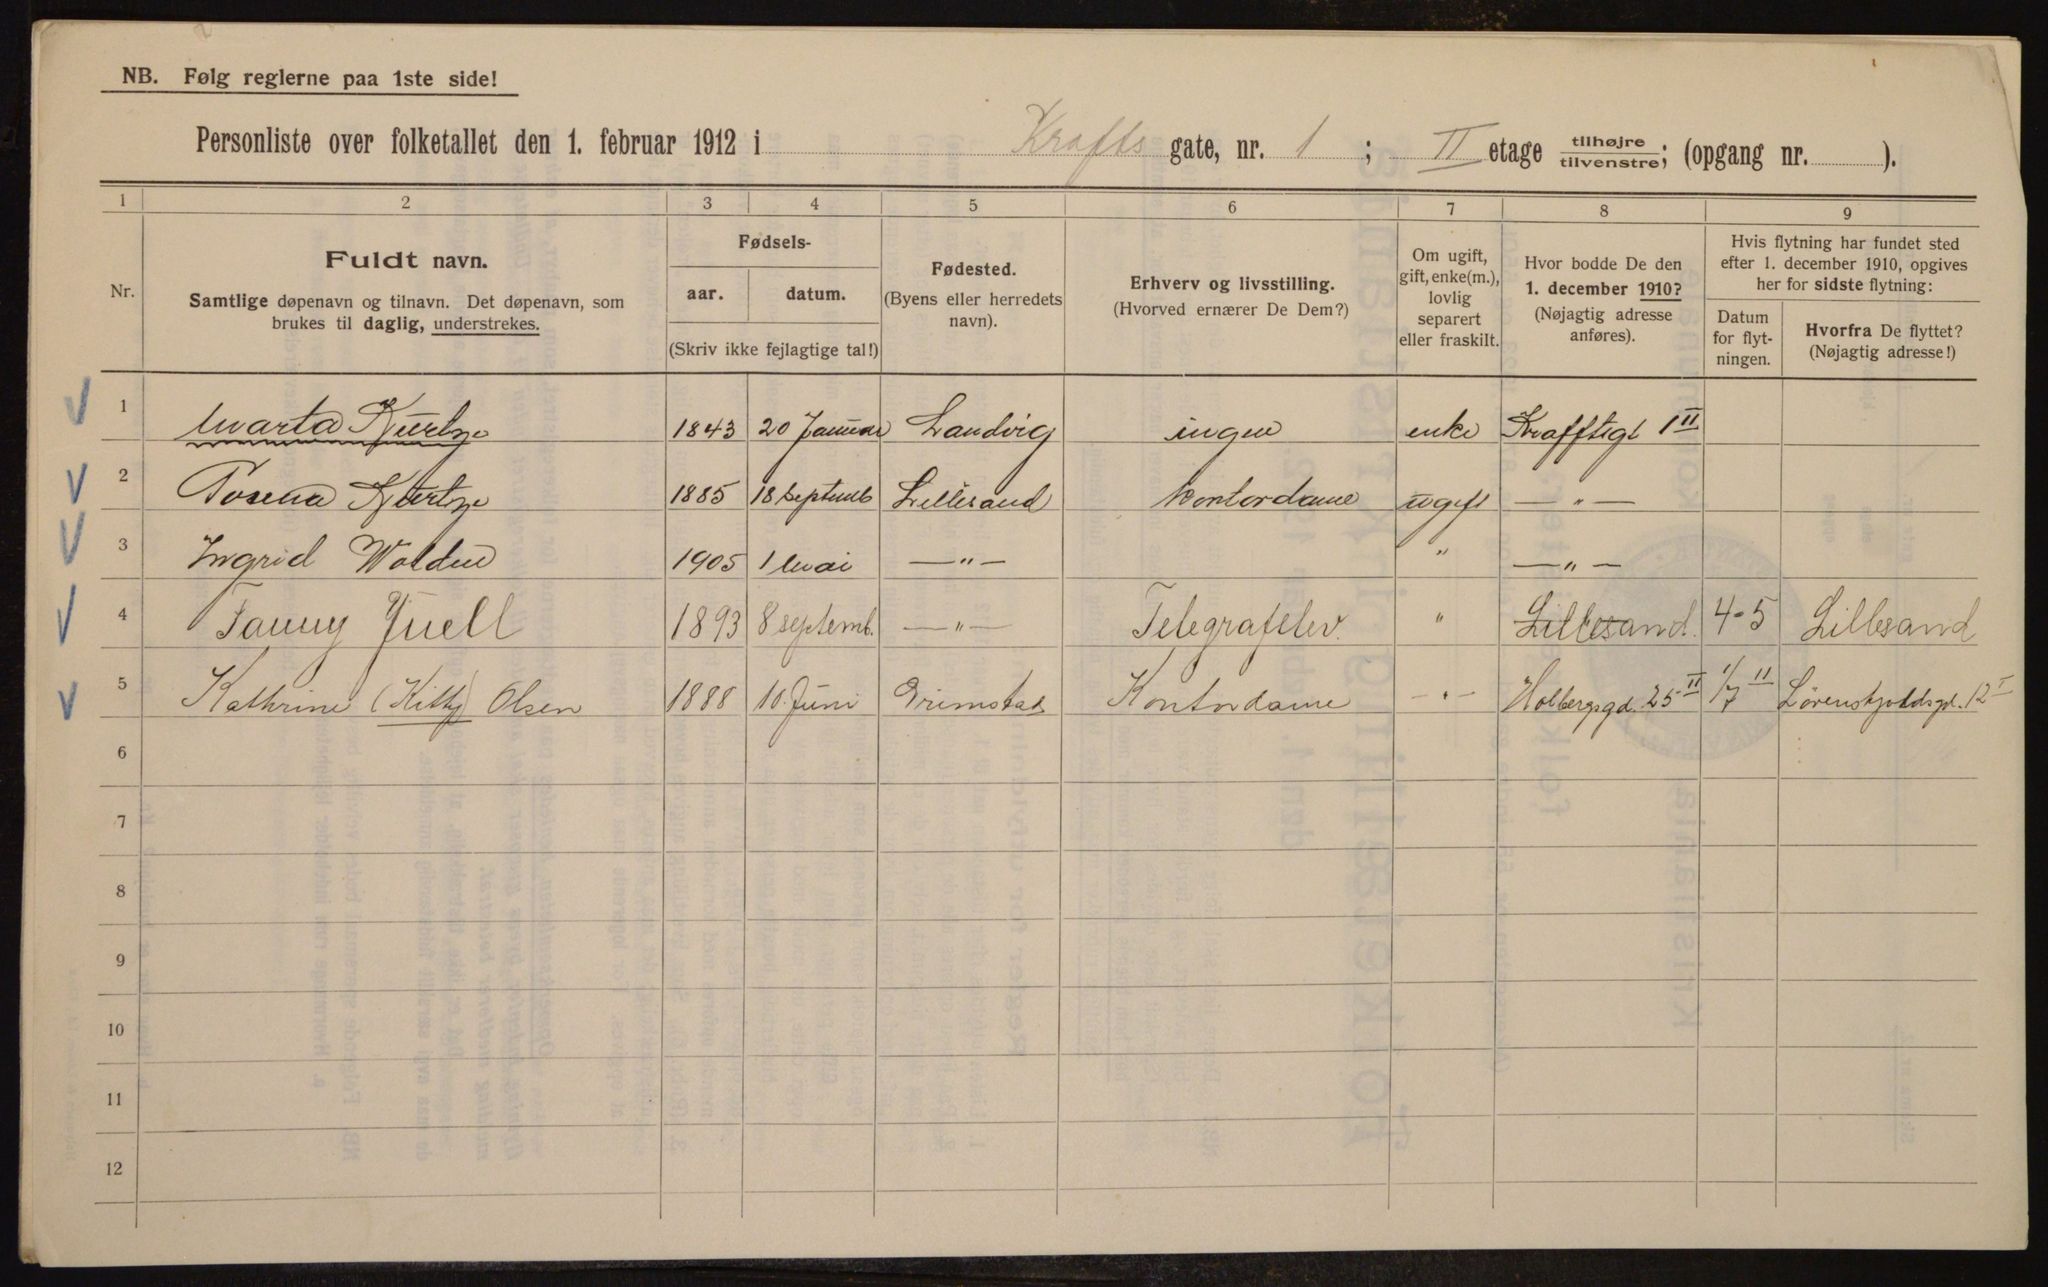 NB. Følg reglerne paa 1ste side!
Personliste over folketallet den 1. februar 1912 i Krafts gate, nr. 1 ; II etage tilhøjre tilvenstre; (opgang nr. ).
1 2 3 4 5 6 7 8 9
Nr.
Fuldt navn.
Samtlige døpenavn og tilnavn. Det døpenavn, som
brukes til daglig, understrekes.
Fødsels-
aar. datum.
(Skriv ikke fejlagtige tal!)
Fødested.
(Byens eller herredets
navn).
Erhverv og livsstilling.
(Hvorved ernærer De Dem?)
Om ugift,
gift, enke(m.),
lovlig
separert
eller fraskilt.
Hvor bodde De den
1. december 1910?
(Nøjagtig adresse
anføres).
Hvis flytning har fundet sted
efter 1. december 1910, opgives
her for sidste flytning:
Datum
for flyt-
ningen.
Hvorfra De flyttet?
(Nøjagtig adresse!)
1 Marta 1843 20 Januar Landvig ingen enke Krafftsgt 1 II
2 1885 18 septemb Lillesand Kontordame ugift — " —
3 Ingrid Wolden 1905 1 Mai — " — " — " —
4 Fanny Juell 1893 8 septemb. — " — Telegrafelev. " Lillesand. 4-5 Lillesand
5 Kathrine (Kitty) Olsen 1888 10. Juni Grimstad Kontordame — " — Holbergsgd. 25 II 1/7 11 Lørenskjoldsgd. 12 I
6
7
8
9
10
11
12